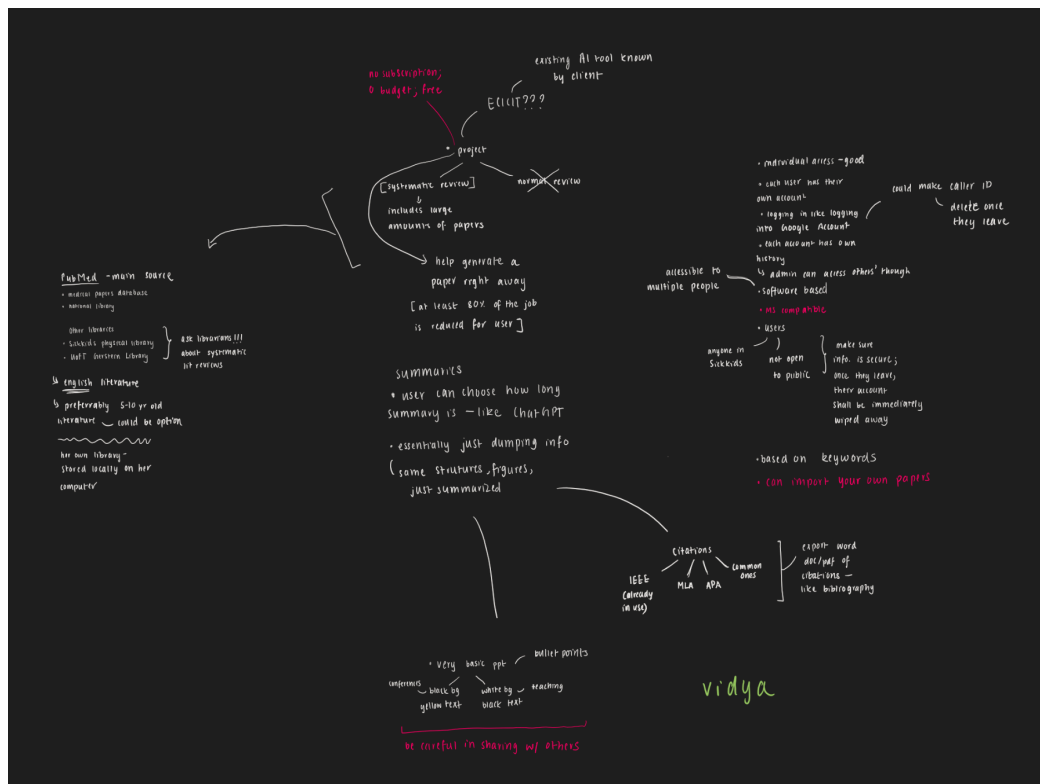 existing AI tool known
by client
no subscription;
0 budget; free
ELICIT???
• project
[systematic review]
normal review
includes large
amounts of papers
help generate a
paper right away
[at least 80% of the job
is reduced for user]
PubMed - main source
• medical papers database
• national library
Other libraries
• Sickkids physical library
• UofT Gerstein Library
ask librarians!!!
about systematic
lit reviews
↳ english literature
↳ preferrably 5-10 yr old
literature
could be option
her own library-
stored locally on her
computer
summaries
• user can choose how long
summary is - like ChatGPT
• essentially just dumping info
( same strutures, figures,
just summarized
• individual access - good
• each user has their
own account
• logging in like logging
into Google Account
could make caller ID
delete once
they leave
• each account has own
history
↳ admin can access others' though
accessible to
multiple people
• software based
• MS compatible
• users
anyone in
Sickkids
not open
to public
make sure
info. is secure;
once they leave,
their account
shall be immediately
wiped away
• based on keywords
• can import your own papers
citations
IEEE
(already
in use)
MLA
APA
common
ones
export word
doc/pdf of
citations -
like bibliography
• very basic ppt
bullet points
conferences
black bg
yellow text
white bg
black text
teaching
be careful in sharing w/ others
vidya